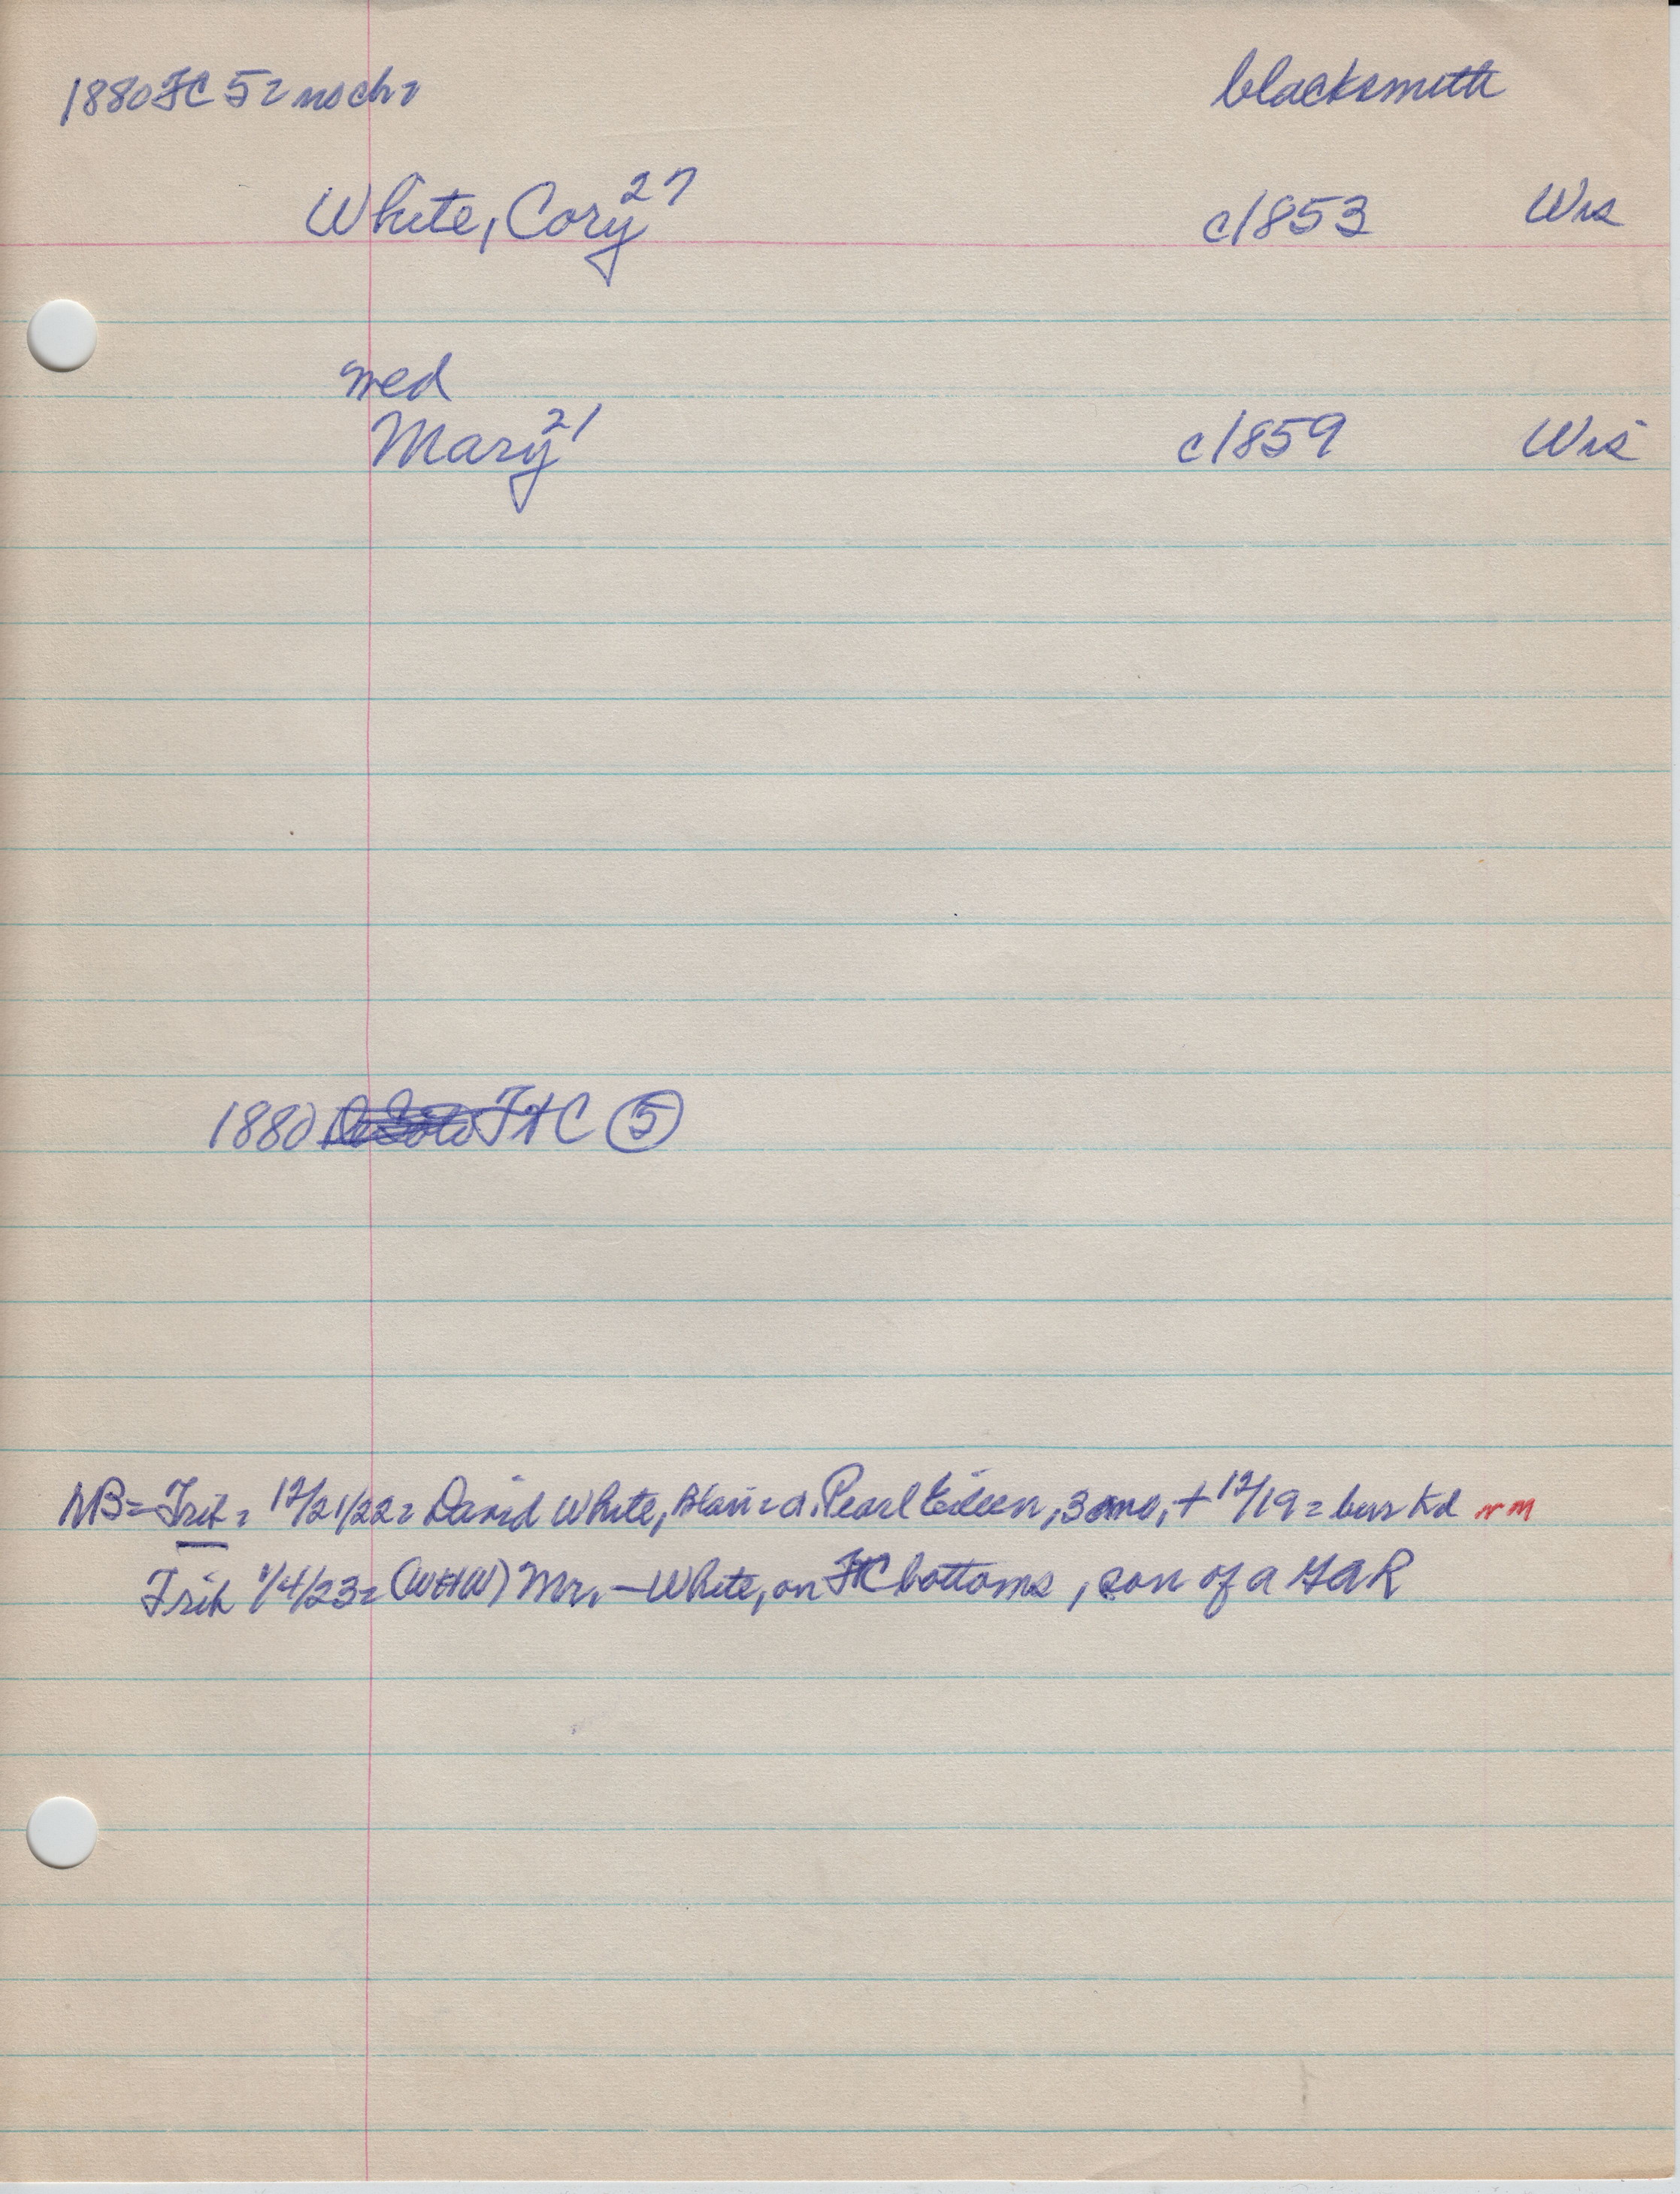 1880 FC 5 = no ch =
blacksmith
White, Cory 27 c1853 Wis
med
Mary 21 c1859 Wis
1880 FtC 5
NB = Trib = 12/21/22 = David White, Blair = d. Pearl Eileen, 3 mo, + 12/19 = bur Kd
Trib 1/4/23 = (WHW) Mr. — White, on FtC bottoms, son of a GAR